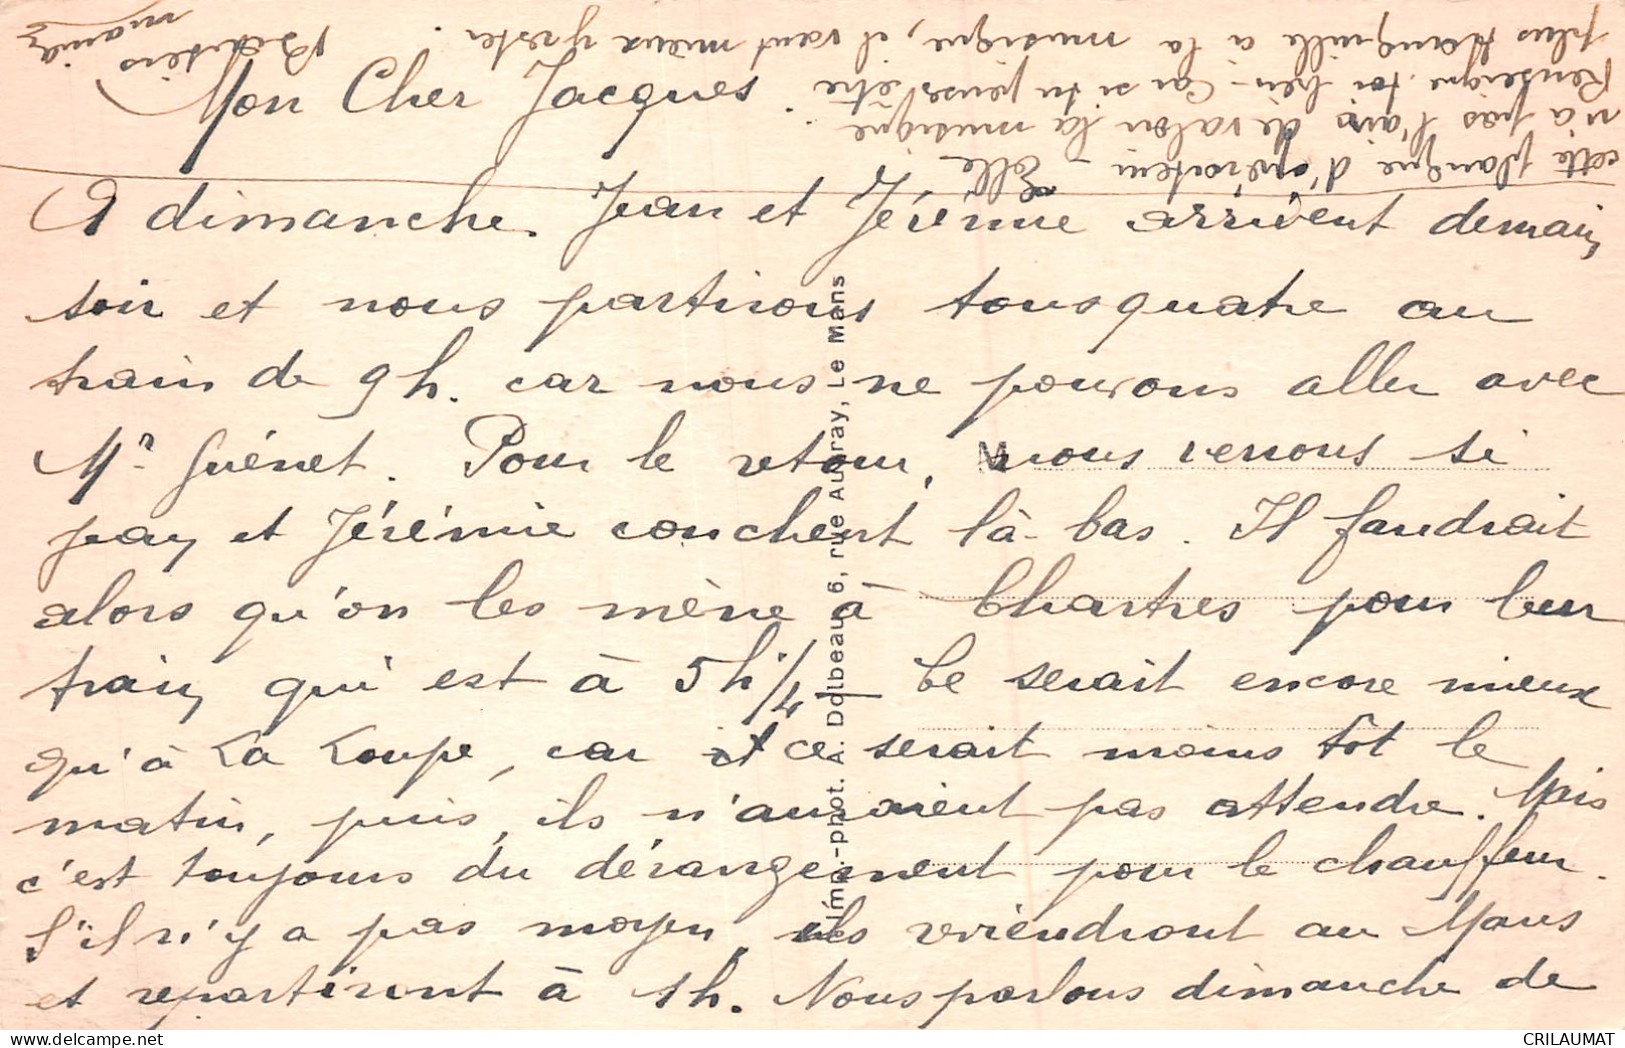 Mon Cher Jacques.
A dimanche. Jean et Jérémie arrivent demain
soir et nous partirons tous quatre au
train de 9 h. car nous ne pouvons aller avec
Mr Guénet. Pour le retour, nous verrons si
Jean et Jérémie couchent là-bas. Il faudrait
alors qu'on les mène à Chartres pour leur
train qui est à 5h 1/4 Ce serait encore mieux
qu'à La Loupe, car ce serait moins tôt le
matin, puis, ils n'auraient pas attendre. Mais
c'est toujours du dérangement pour le chauffeur.
S'il n'y a pas moyen, ils viendront au Mans
et repartiront à 1h. Nous parlons dimanche de
cette planque d'opérateur - Elle
n'a pas l'air de valoir la musique
Renseigne toi bien - Car si tu penses être
plus tranquille à la musique, il vaut mieux y rester.
Baisers
mamie
Imp.-phot. A. Dolbeau, 6, rue Auvray, Le Mans
M
CRILAUMAT
www.delcampe.net